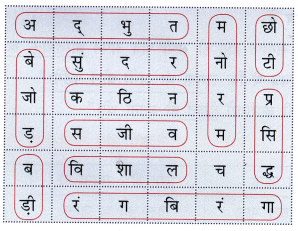 अ द् भु त म छो
बे सुं द र नो टी
जो क ठि न र प्र
ड़ स जी व म सि
ब वि शा ल च द्ध
ड़ी रं ग बि रं गा